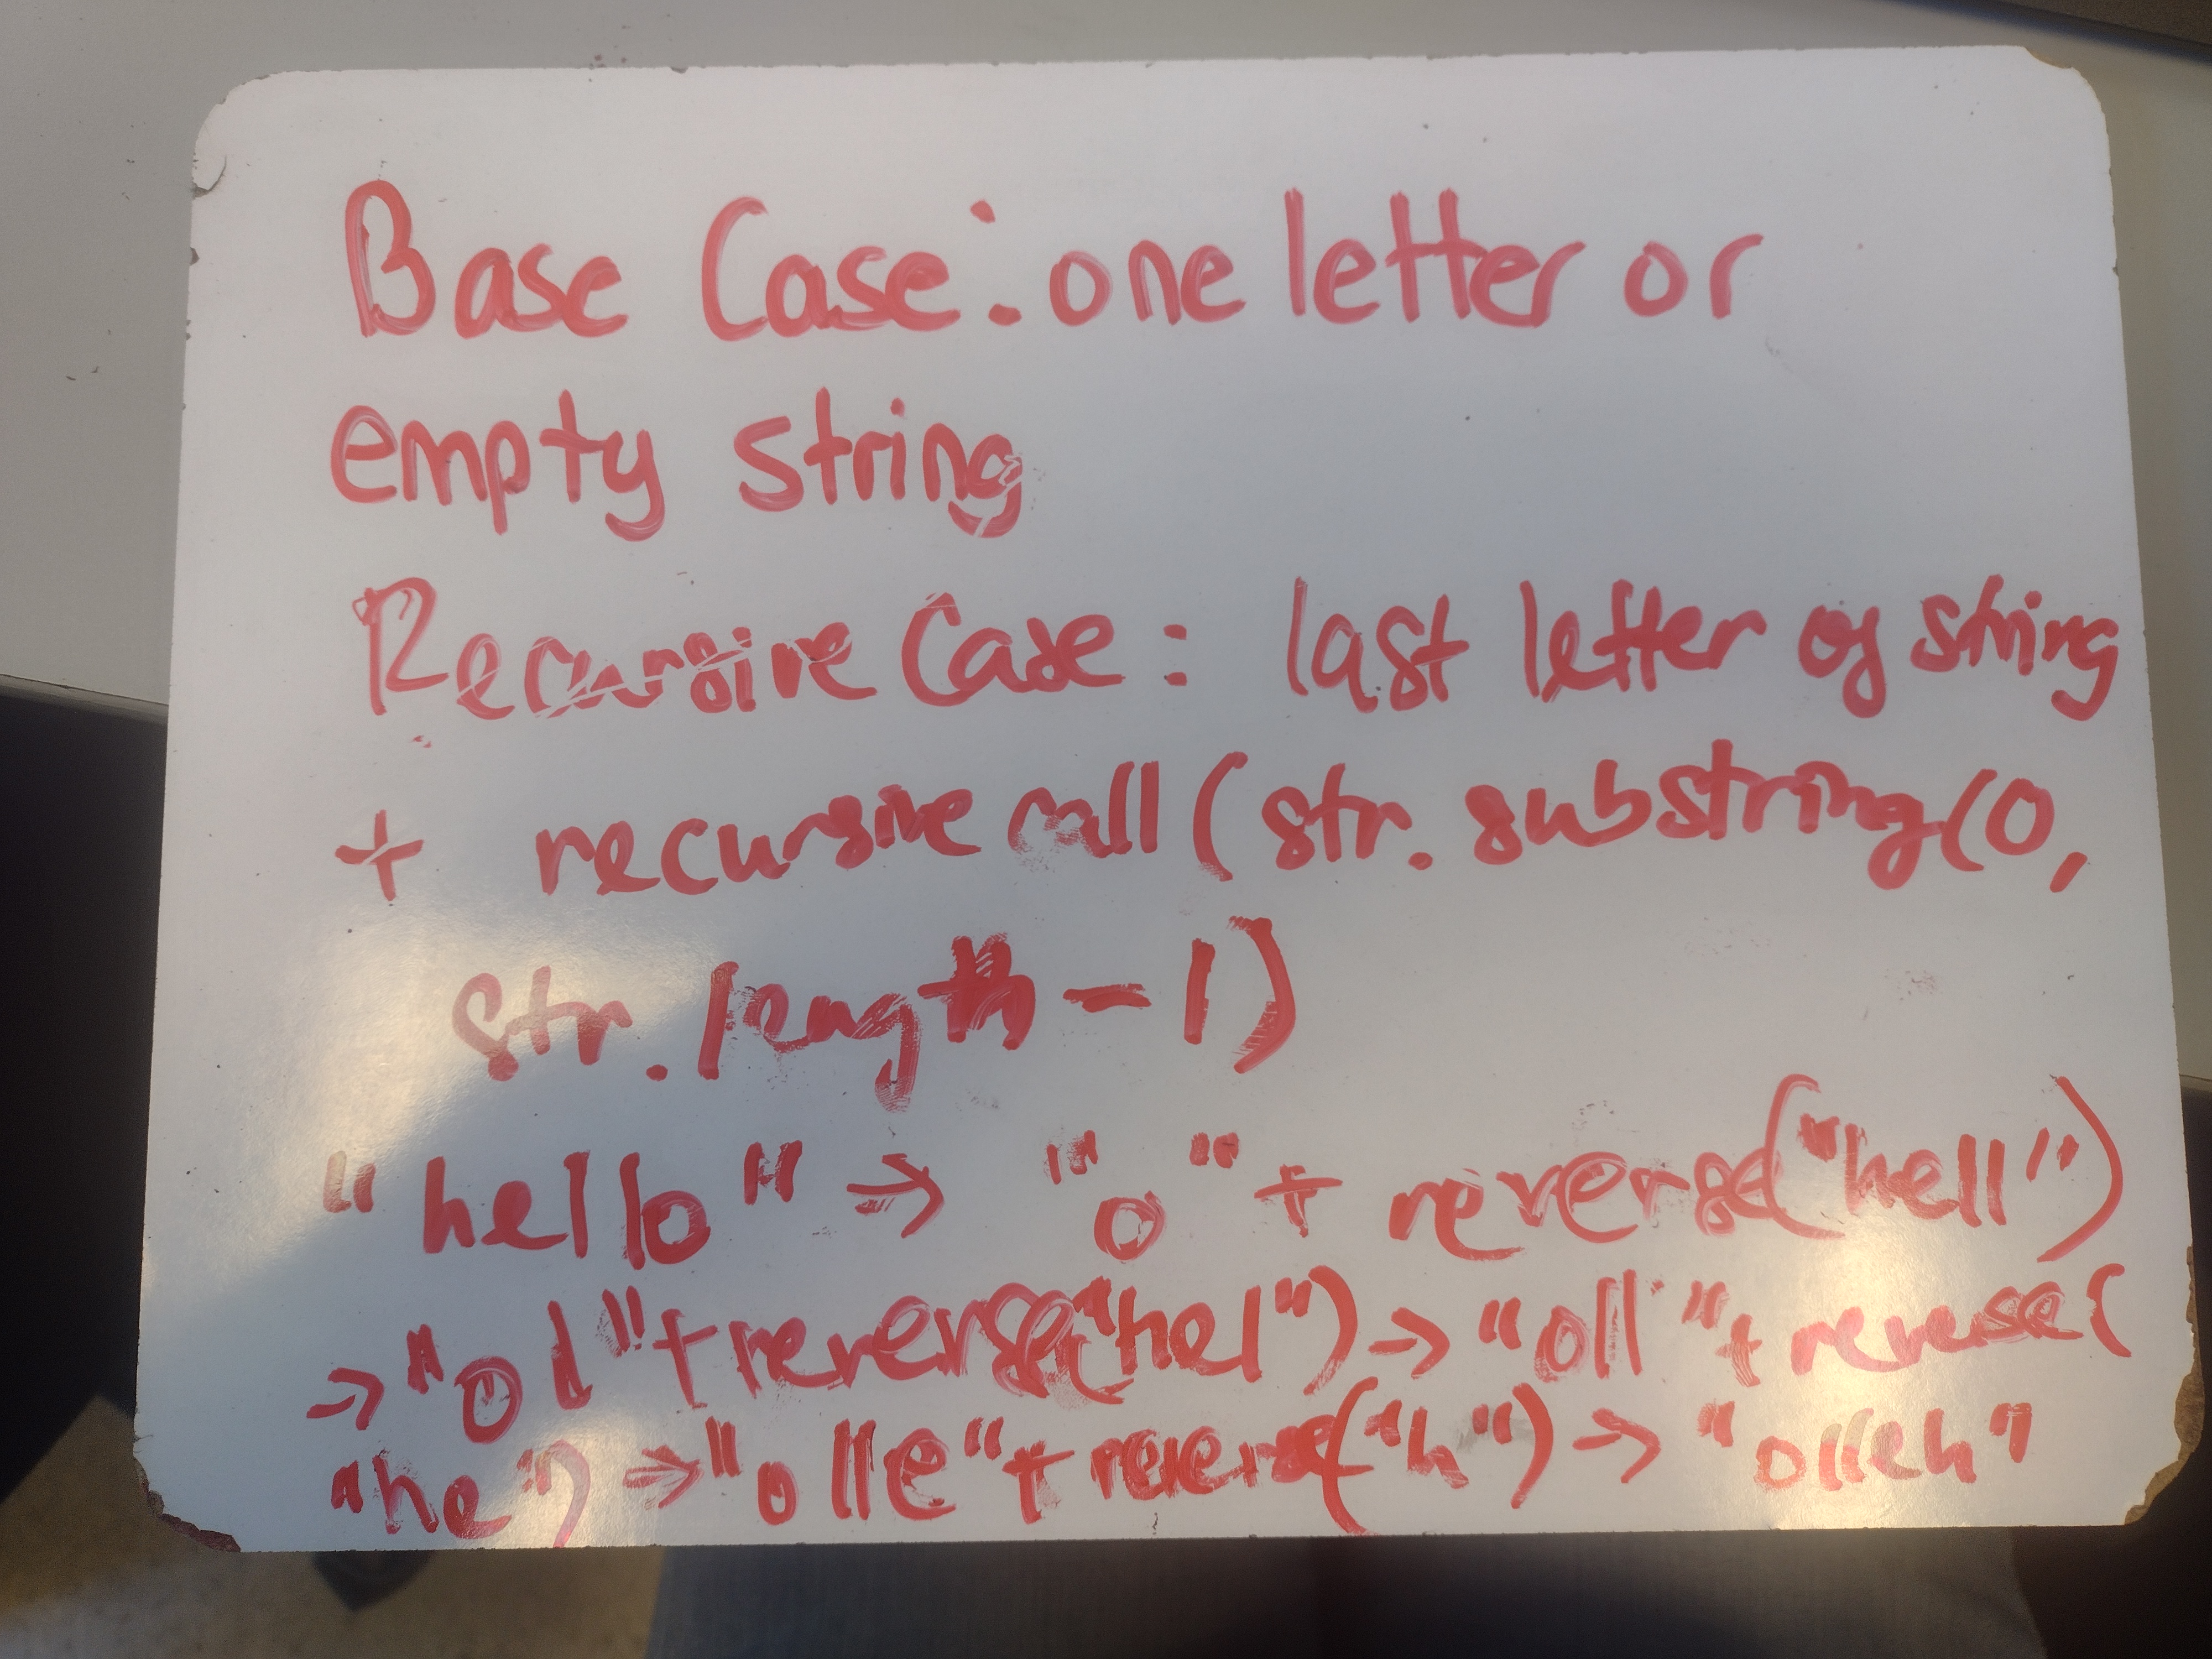 Base Case: one letter or
empty string
Recursive Case: last letter of string
+ recursive call (str.substring(0,
str.length-1)
"hello" → "o" + reverse("hell")
→ "ol" + reverse("hel") → "oll" + reverse(
"he") → "olle" + reverse("h") → "olleh"